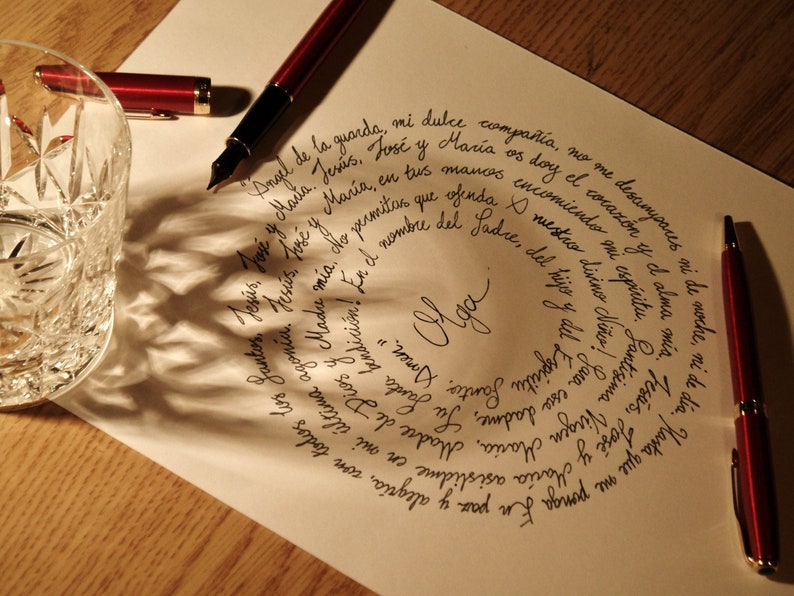 "Ángel de la guarda, mi dulce compañía, no me desampares ni de noche, ni de día. Hasta que me ponga En paz y alegría, con todos los Santos, Jesús, José y María. Jesús, José y María os doy el corazón y el alma mía. Jesús, José y María asistidme en mi última agonía. Jesús, José y María, en tus manos encomiendo mi espíritu. Santísima Virgen María, Madre de Dios y Madre mía, No permitas que ofenda A nuestro divino Niño! Para eso dadme, Tu Santa bendición! En el nombre del Padre, del hijo y del Espíritu Santo, Amen."
Olga